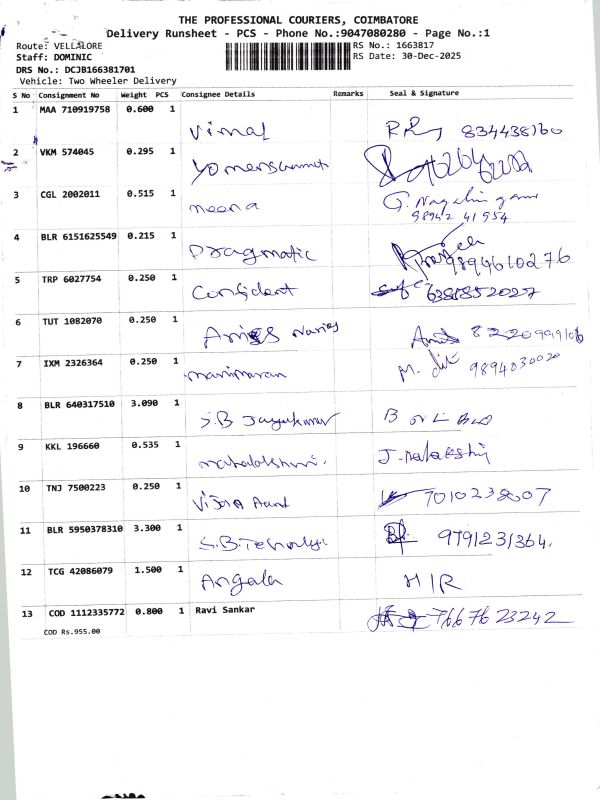 THE PROFESSIONAL COURIERS, COIMBATORE
Delivery Runsheet - PCS - Phone No.:9047080280 - Page No.:1
Route: VELLALORE
RS No.: 1663817
Staff: DOMINIC
RS Date: 30-Dec-2025
DRS No.: DCJB166381701
Vehicle: Two Wheeler Delivery
S No Consignment No Weight PCS Consignee Details Remarks Seal & Signature
1 MAA 710919758 0.600 1 Vimal 834438160
2 VKM 574045 0.295 1
3 CGL 2002011 0.515 1 meena G. Nagalingam
98942 41954
4 BLR 6151625549 0.215 1 Pragmatic 9894610276
5 TRP 6027754 0.250 1 Confident 6381852027
6 TUT 1082070 0.250 1
7 IXM 2326364 0.250 1 manimaran 9894030020
8 BLR 640317510 3.090 1 S.B Jayakumar
9 KKL 196660 0.535 1 mahalakshmi.
10 TNJ 7500223 0.250 1 7010238007
11 BLR 5950378310 3.300 1 9791231364.
12 TCG 42086079 1.500 1 Angala H/R
13 COD 1112335772 0.800 1 Ravi Sankar 7667623242
COD Rs.955.00